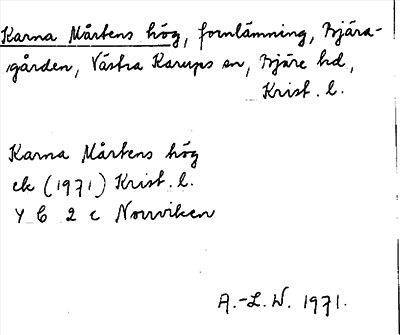 Karna Mårtens hög, fornlämning, Bjära-
gården, Västra Karups sn, Bjäre hd,
Krist. l.
Karna Mårtens hög
ek (1971) Krist. l.
4 C 2 c Norrviken
A.-L.W. 1971.